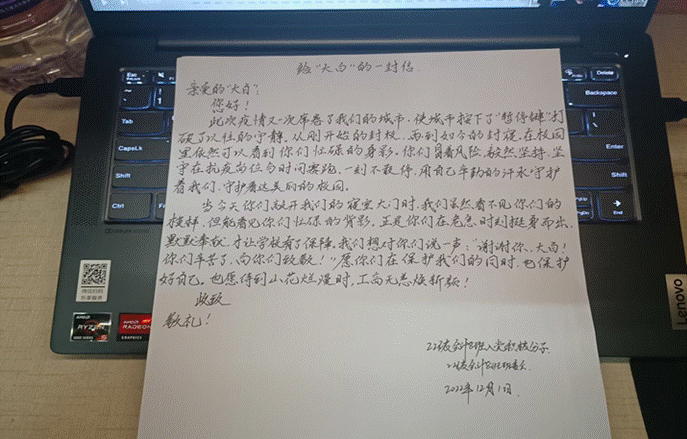 给"大白"的一封信
亲爱的"大白":
您好!
此次疫情又一次席卷了我们的城市,使城市按下了"暂停键"打
破了以往的宁静,从刚开始的封校,再到如今的封寝,在校园
里依然可以看到你们忙碌的身影。你们冒着风险,毅然坚持,坚
守在抗疫岗位与时间赛跑,一刻不敢停,用自己辛勤的汗水守护
着我们,守护着这美丽的校园。
当今天你们敲开我们的寝室大门时,我们虽然看不见你们的
模样,但能看见你们忙碌的背影,正是你们在危急时刻挺身而出,
默默奉献,才让学校有了保障,我们想对你们说一声:"谢谢你、大白!
你们辛苦了,向你们致敬!"愿你们在保护我们的同时,也保护
好自己。也愿待到山花烂漫时,工商无恙焕新颜!
此致
敬礼!
22级会计 班入党积极分子
22级会计 班
2022年12月1日
Esc
Tab
CapsLk
Shift
Ctrl
Delete
Backspace
Enter
Shift
Lenovo
AMD
RYZEN
5
AMD
RADEON
GRAPHICS